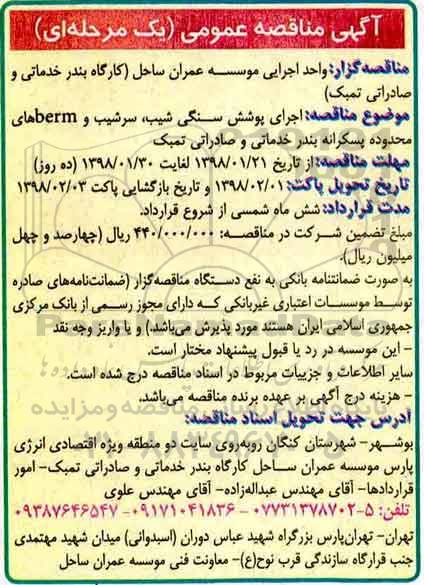 آگهی مناقصه عمومی (یک مرحله‌ای)
مناقصه‌گزار: واحد اجرایی موسسه عمران ساحل (کارگاه بندر خدماتی و
صادراتی تمبک)
موضوع مناقصه: اجرای پوشش سنگی شیب، سرشیب و bermهای
محدوده پسکرانه بندر خدماتی و صادراتی تمبک
مهلت مناقصه: از تاریخ ۱۳۹۸/۰۱/۲۱ لغایت ۱۳۹۸/۰۱/۳۰ (ده روز)
تاریخ تحویل پاکت: ۱۳۹۸/۰۲/۰۱ و تاریخ بازگشایی پاکت ۱۳۹۸/۰۲/۰۳
مدت قرارداد: شش ماه شمسی از شروع قرارداد.
مبلغ تضمین شرکت در مناقصه: ۴۴۰/۰۰۰/۰۰۰ ریال (چهارصد و چهل
میلیون ریال).
به صورت ضمانتنامه بانکی به نفع دستگاه مناقصه‌گزار (ضمانت‌نامه‌های صادره
توسط موسسات اعتباری غیربانکی که دارای مجوز رسمی از بانک مرکزی
جمهوری اسلامی ایران هستند مورد پذیرش می‌باشد.) و یا واریز وجه نقد
- این موسسه در رد یا قبول پیشنهاد مختار است.
سایر اطلاعات و جزییات مربوط در اسناد مناقصه درج شده است.
- هزینه درج آگهی بر عهده برنده مناقصه می‌باشد.
آدرس جهت تحویل اسناد مناقصه:
بوشهر- شهرستان کنگان روبه‌روی سایت دو منطقه ویژه اقتصادی انرژی
پارس موسسه عمران ساحل کارگاه بندر خدماتی و صادراتی تمبک- امور
قراردادها- آقای مهندس عبداله‌زاده- آقای مهندس علوی
تلفن: ۵-۰۷۷۳۱۳۷۸۷۰۲ - ۰۹۱۷۱۰۴۱۸۳۶ - ۰۹۳۸۷۶۴۶۵۴۷
تهران- تهران‌پارس بزرگراه شهید عباس دوران (اسبدوانی) میدان شهید مهتمدی
جنب قرارگاه سازندگی قرب نوح(ع)- معاونت فنی موسسه عمران ساحل